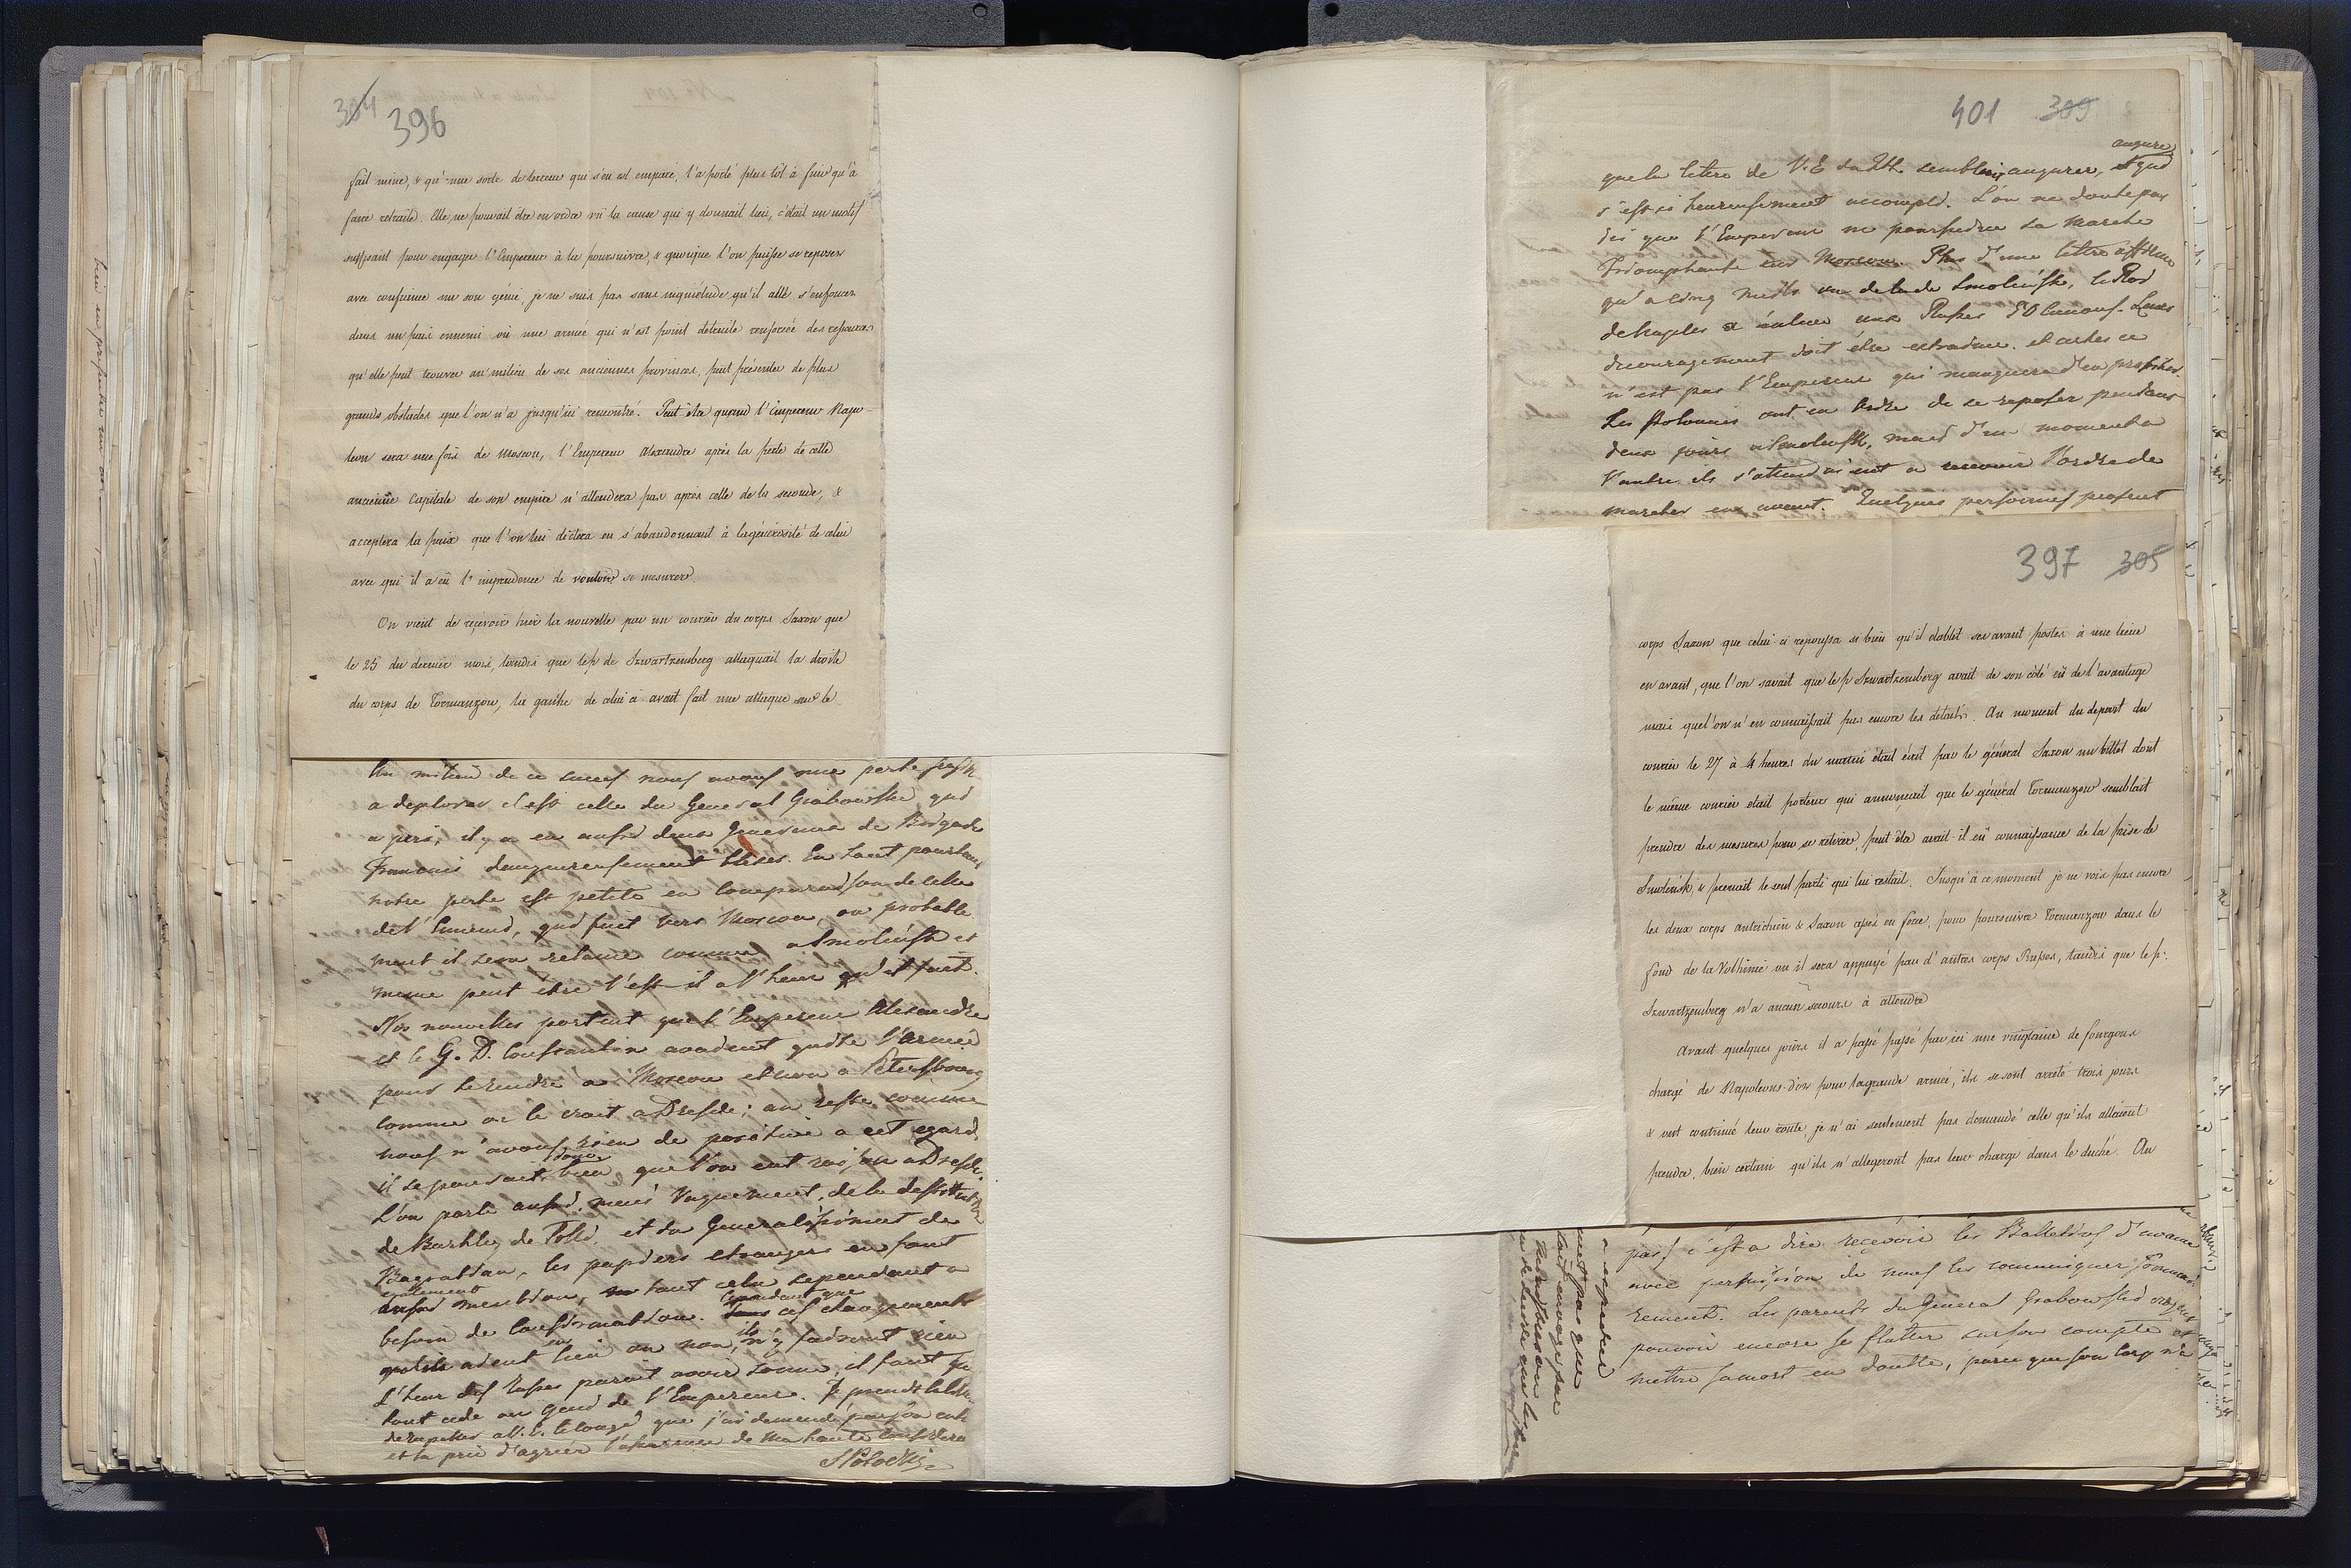 304 396
fait mine, & qu'une sorte de terreur qui s'en est emparé, l'a porté plus tôt à fuir qu'à
faire retraite. Elle ne pouvait être en ordre vû la cause qui y donnait lieu, c'était un motif
suffisant pour engager l'Empereur à la poursuivre, & quoique l'on puisse se reposer
avec confiance sur son génie, je ne suis pas sans inquiétude qu'il aille s'enfoncer
dans un païs ennemi où une armée qui n'est point détruite renforcée des ressources
qu'elle peut trouver au milieu de ses anciennes provinces, peut présenter de plus
grands obstacles que l'on n'a jusqu'ici rencontré. Peut être quand l'Empereur Napo-
leon sera une fois de Moscou, l'Empereur Alexandre après la perte de cette
ancienne Capitale de son empire n'attendera pas après celle de la seconde, &
acceptera la paix que l'on lui dictera en s'abandonnant à la générosité de celui
avec qui il a eû l'imprudence de vouloir se mesurer.
On vient de reçevoir hier la nouvelle par un courier du corps Saxon que
le 25 du dernier mois, tandis que le p. de Szwartzemberg attaquait la droite
du corps de Tormanzow, la gauche de celui ci avait fait une attaque sur le
Au milieu de ce succes nous avons une perte
a deplorer c'est celle du General Grabowski, qui
a peri, il y a eu aussi deux Generaux de Brigade
Francais dangereusement blesses. En tout pourtant
notre perte est petite en comparaison de celle
de l'Ennemi, qui fuit vers Moscou, ou probable
ment il sera relancé comme a Smolensk et
meme peut etre l'est-il a l'heur qu'il fait.
Nos nouvelles portent que l'Empereur Alexandre
et le G. D. Constantin avoient quitté l'armée
pour se rendre a Moscou et non a Petersbourg
comme on le croit a Dresde; au reste comme
nous n'avons rien de positive a cet egard,
il se pourroit donc bien que l'on eut raison a Dresde
L'on parle aussi, mais vaguement, de la destitution
de Barklay de Tolli, et du Generalissimat de
Bagration, les papiers etrangers en font
egalement
mention, tout cela cependant a
besoin de confirmation. cependant que ces changements
aient lieu ou non, ils n'y fairont rien
L'heur des Russes parait avoir sonné, il faut que
tout cede au Genie de l'Empereur. Je prends la liberté
de rapeller a V. E. le congé que j'ai demandé pour
et la prie d'agréer l'assurance de ma haute consideration
SPotocki
401 309
que la lettre de V. E. du sembloit augurer, et qui
augure
s'est si heureusement accompli. L'on ne doute pas
ici que l'Empereur ne poursuive sa marche
triomphante sur Moscou. Plus d'une lettre affirme
qu'a cinq milles au dela de Smolensk, le Roi
de Naples a enlevé aux Russes 30 canons. Leur
decouragement doit etre extreme. et certes ce
n'est pas l'Empereur qui manquera d'en profiter.
Les Polonais ont eu ordre de se reposer pendant
deux jours a Smolensk, mais d'un moment a
l'autre ils s'attendoient a recevoir l'ordre de
marcher en avant. Quelques personnes pensent
397 305
corps Saxon que celui-ci repoussa si bien qu'il établit ses avant postes à une lieue
en avant, que l'on savait que le p Szwartzemberg avait de son côté eû de l'avantage
mais que l'on n'en connaissait pas encore les détails. Au moment du depart du
courier le 27 à 4 heures du matin était écrit par le général Saxon un billet dont
le même courier était porteur qui annonçait que le général Tormanzow semblait
prendre des mesures pour se retirer, peut être avait-il eû connaissance de la prise de
Smolensk, & prenait le seul parti qui lui restait. Jusqu'à ce moment je ne vois pas encore
les deux corps autrichien & Saxon assés en force, pour poursuivre Tormanzow dans le
fond de la Volhinie où il sera appuyé par d'autres corps Russes, tandis que le p.
Szwartzemberg n'a aucun secours à attendre
Avant quelques jours il a passé passé par ici une vingtaine de fourgons
chargé de Napoleons-d'or pour la grande armée, ils se sont arreté trois jours
& ont continué leur route, je n'ai seulement pas demandé celle qu'ils allaient
prendre, bien certain qu'ils n'allegeront pas leur charge dans le duché. Au
pas) c'est a dire reçevoir les Bulletins d'avance
avec permission de nous les communiquer
Les parents du General Grabowski croyent
pouvoir encore se flatter sur son compte et
mettre sa mort en doutte, parce que son corp n'a